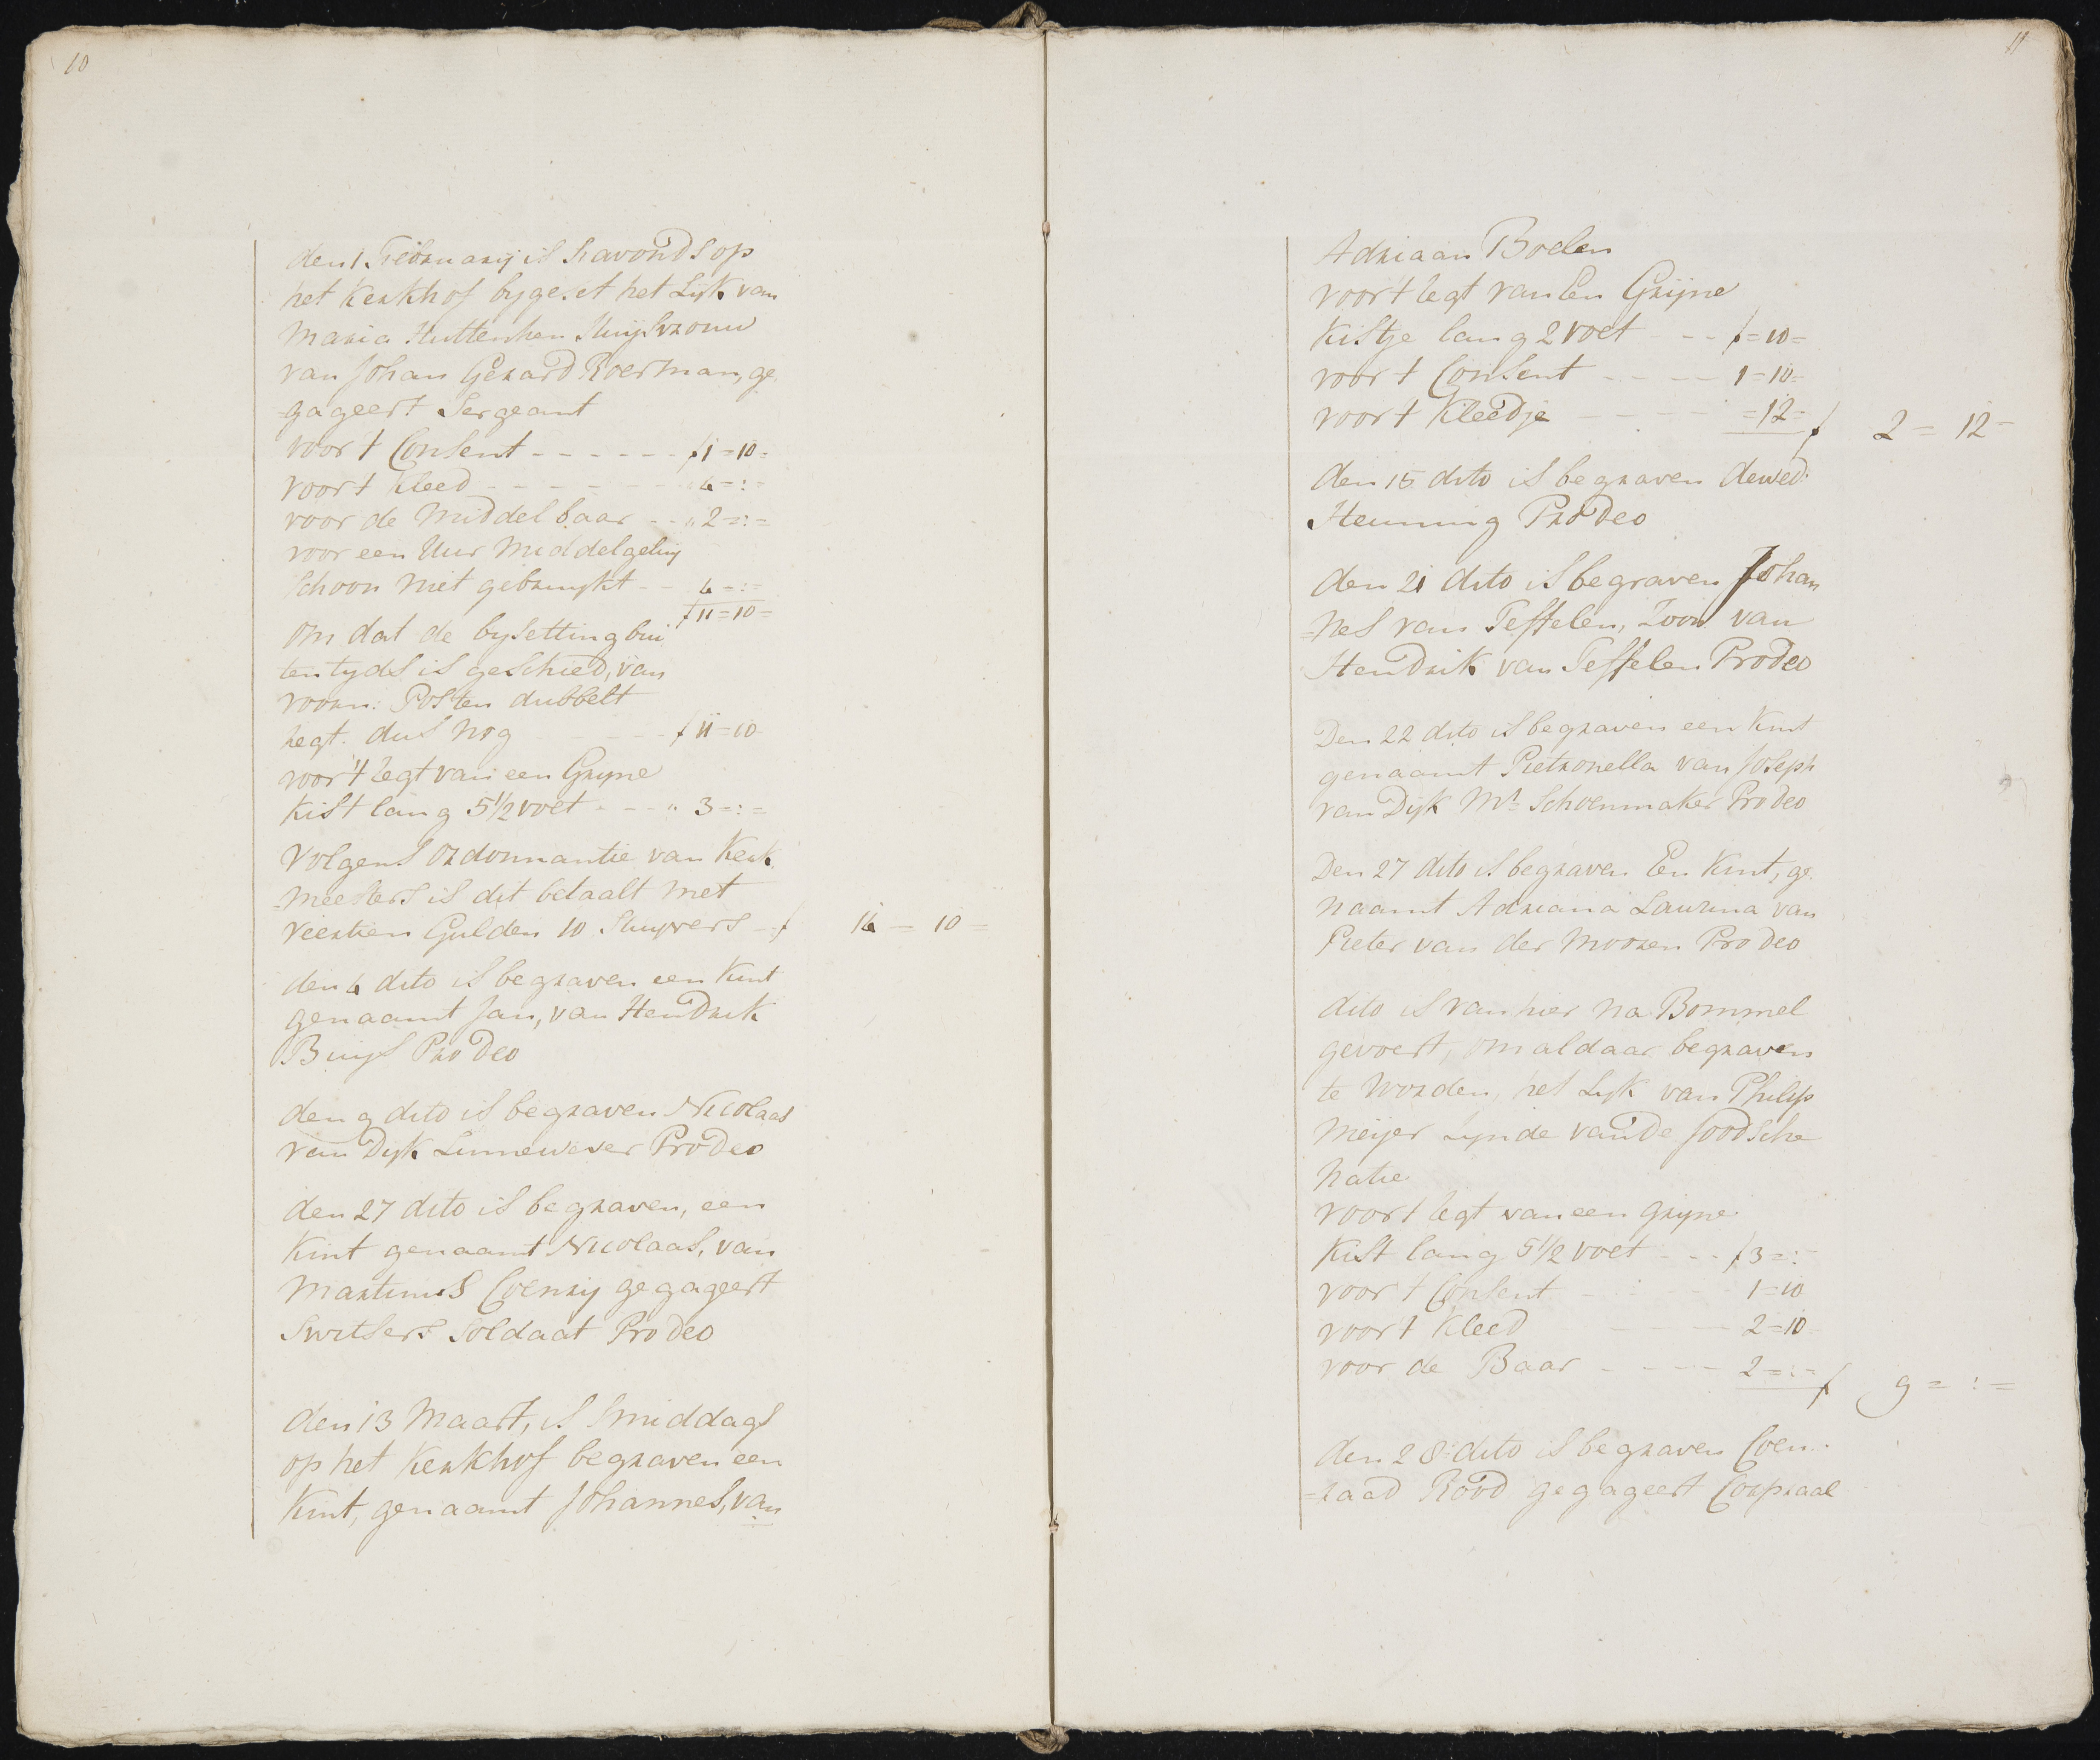 10
den 1 Februarij is savonds op
het Kerkhof bygeset het Lijk van
Maria Huttenhen Huijsvrouw
van Johan Gerard Roerman, ge
=gageert Sergeant
voor t Consent - - - - - - f 1=10=
voor t Kleed - - - - - - - " 4=:=
voor de Middelbaar - - " 2=:=
voor een Uur Middelgeluy
schoon niet gebruykt - - 4=:=
f 11=10=
om dat de bysetting bui
ten tyds is geschied, van
voorn: Posten dubbelt
regt. dus nog - - - - - f 11=10
voor 't regt van een Gryne
Kist lang 5½ voet - - - " 3=:=
Volgens ordonnantie van Kerk
=meesters is dit betaalt met
veertien Gulden 10 Stuyvers - f 14 = 10 =
den 4 dito is begraven een Kint
genaamt Jan, van Hendrik
Buijs Pro Deo
den 9 dito is begraven Nicolaas
van Dijk Linnewever Pro Deo
den 27 dito is begraven, een
Kint genaamt Nicolaas, van
Martinus Coenrij gegageert
Switsers Soldaat Pro Deo
den 13 Maart, is smiddags
op het Kerkhof begraven een
Kint, genaamt Johannes, van
11
Adriaan Boelen
voor t regt van Een Grijne
Kistje lang 2 voet - - - f =10=
voor t Consent - - - - 1=10=
voor t Kleedje - - - - - =12= f 2 = 12 =
den 15 dito is begraven de wed:
Henning Pro Deo
den 21 dito is begraven Johan
=nes van Teffelen, Zoon van
Hendrik van Teffelen Pro Deo
Den 22 dito is begraven een Kint
genaamt Pietronella van Joseph
van Dijk Mr: Schoenmaker Pro Deo
Den 27 dito is begraven Een Kint, ge
naamt Adriana Laurina van
Pieter van der Mooren Pro Deo
dito is van hier na Bommel
gevoert, om aldaar begraven
te worden, het Lijk van Philip
Meijer zynde van De Joodsche
Natie
voor t regt van een gryne
Kist lang 5½ voet - - - f 3=:=
voor t Consent - - - - 1=10
voor t Kleed - - - - 2=10
voor de Baar - - - - - 2=:= f 9 = : =
den 28 dito is begraven Coen
=raad Rood gegageert Corpraal